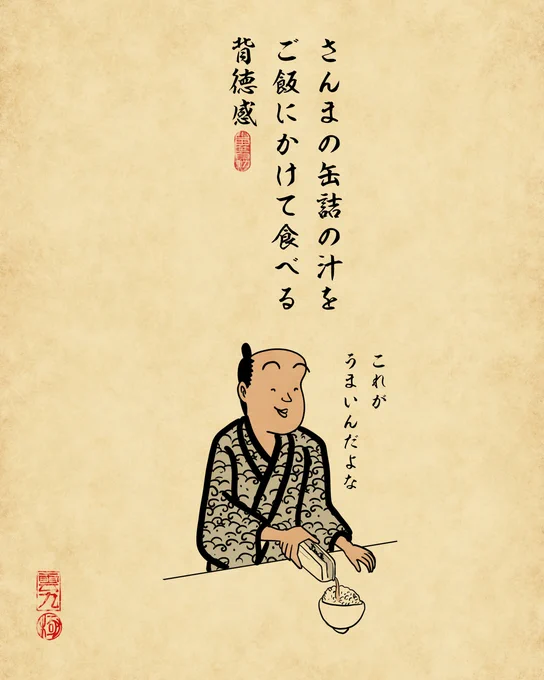 さんまの缶詰の汁を
ご飯にかけて食べる
背徳感
これが
うまいんだよな